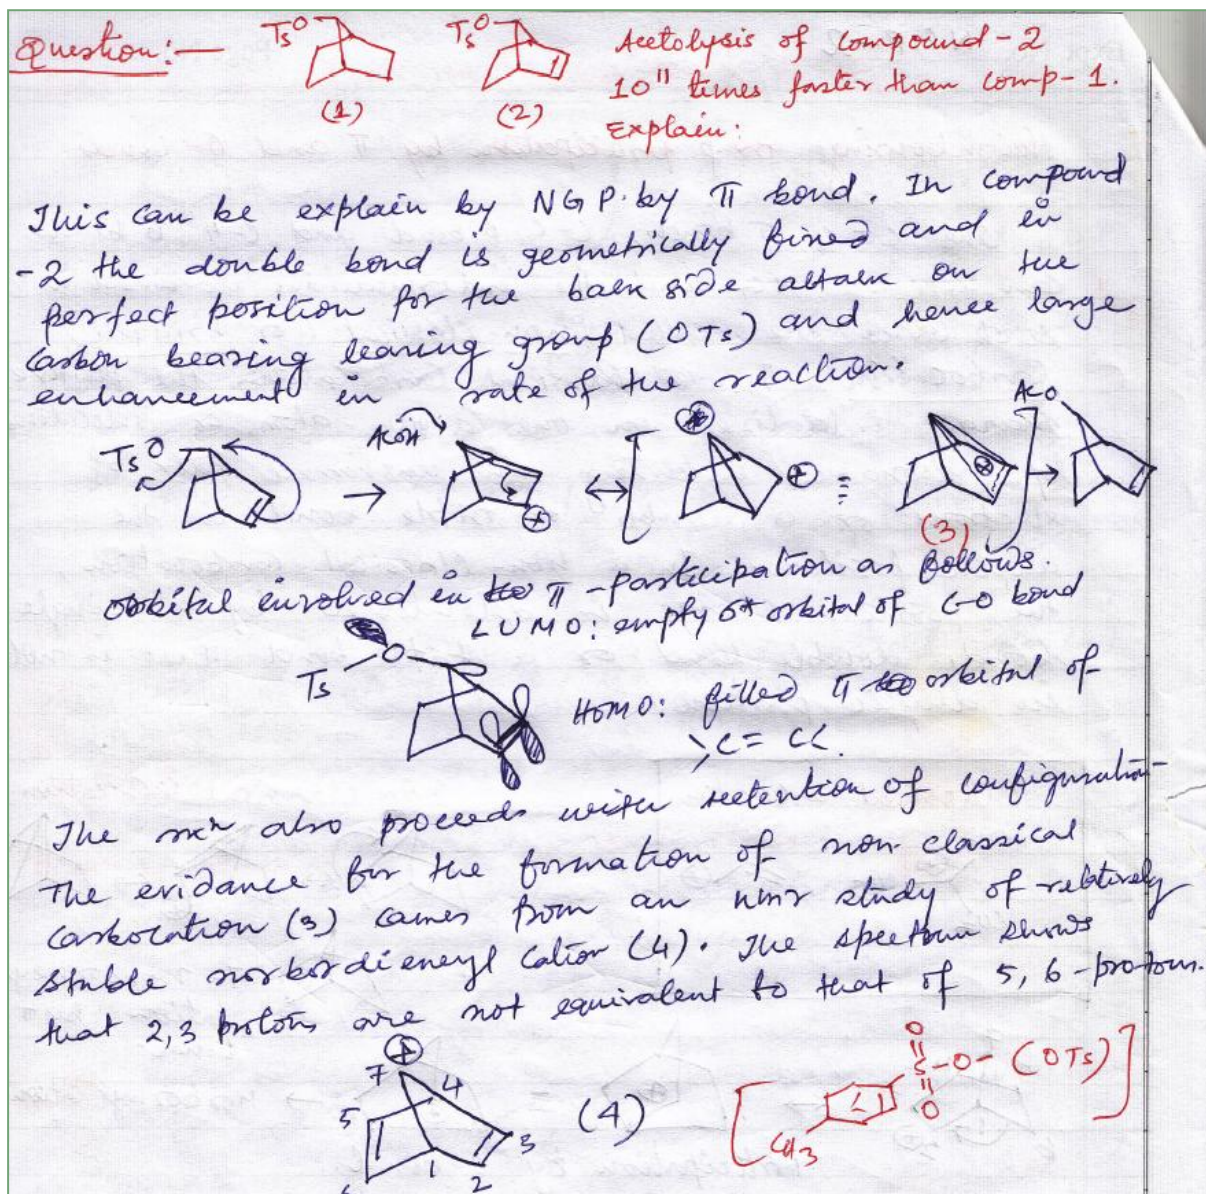 Question:—
TsO
TsO
(1)
(2)
Acetolysis of compound-2
10¹¹ times faster than comp-1.
Explain:
This can be explain by NGP. by π bond. In compound
-2 the double bond is geometrically fixed and in
perfect position for the back side attack on the
carbon bearing leaving group (OTs) and hence large
enhancement in rate of the reaction.
TsO
AcOH
⊕
⊕
⊕
⊕
AcO
(3)
orbital involved in π-participation as follows.
LUMO: empty σ* orbital of C-O bond
Ts
O
HOMO: filled π orbital of
>C=C<.
The rxn also proceeds with retention of configuration
The evidance for the formation of non classical
carbocation (3) comes from an nmr study of relatively
stable norbordienenyl cation (4). The spectrum shows
that 2,3 protons are not equivalent to that of 5,6-protons.
⊕
7
4
5
3
1
2
6
(4)
O
S
O-
O
(OTs)
CH3